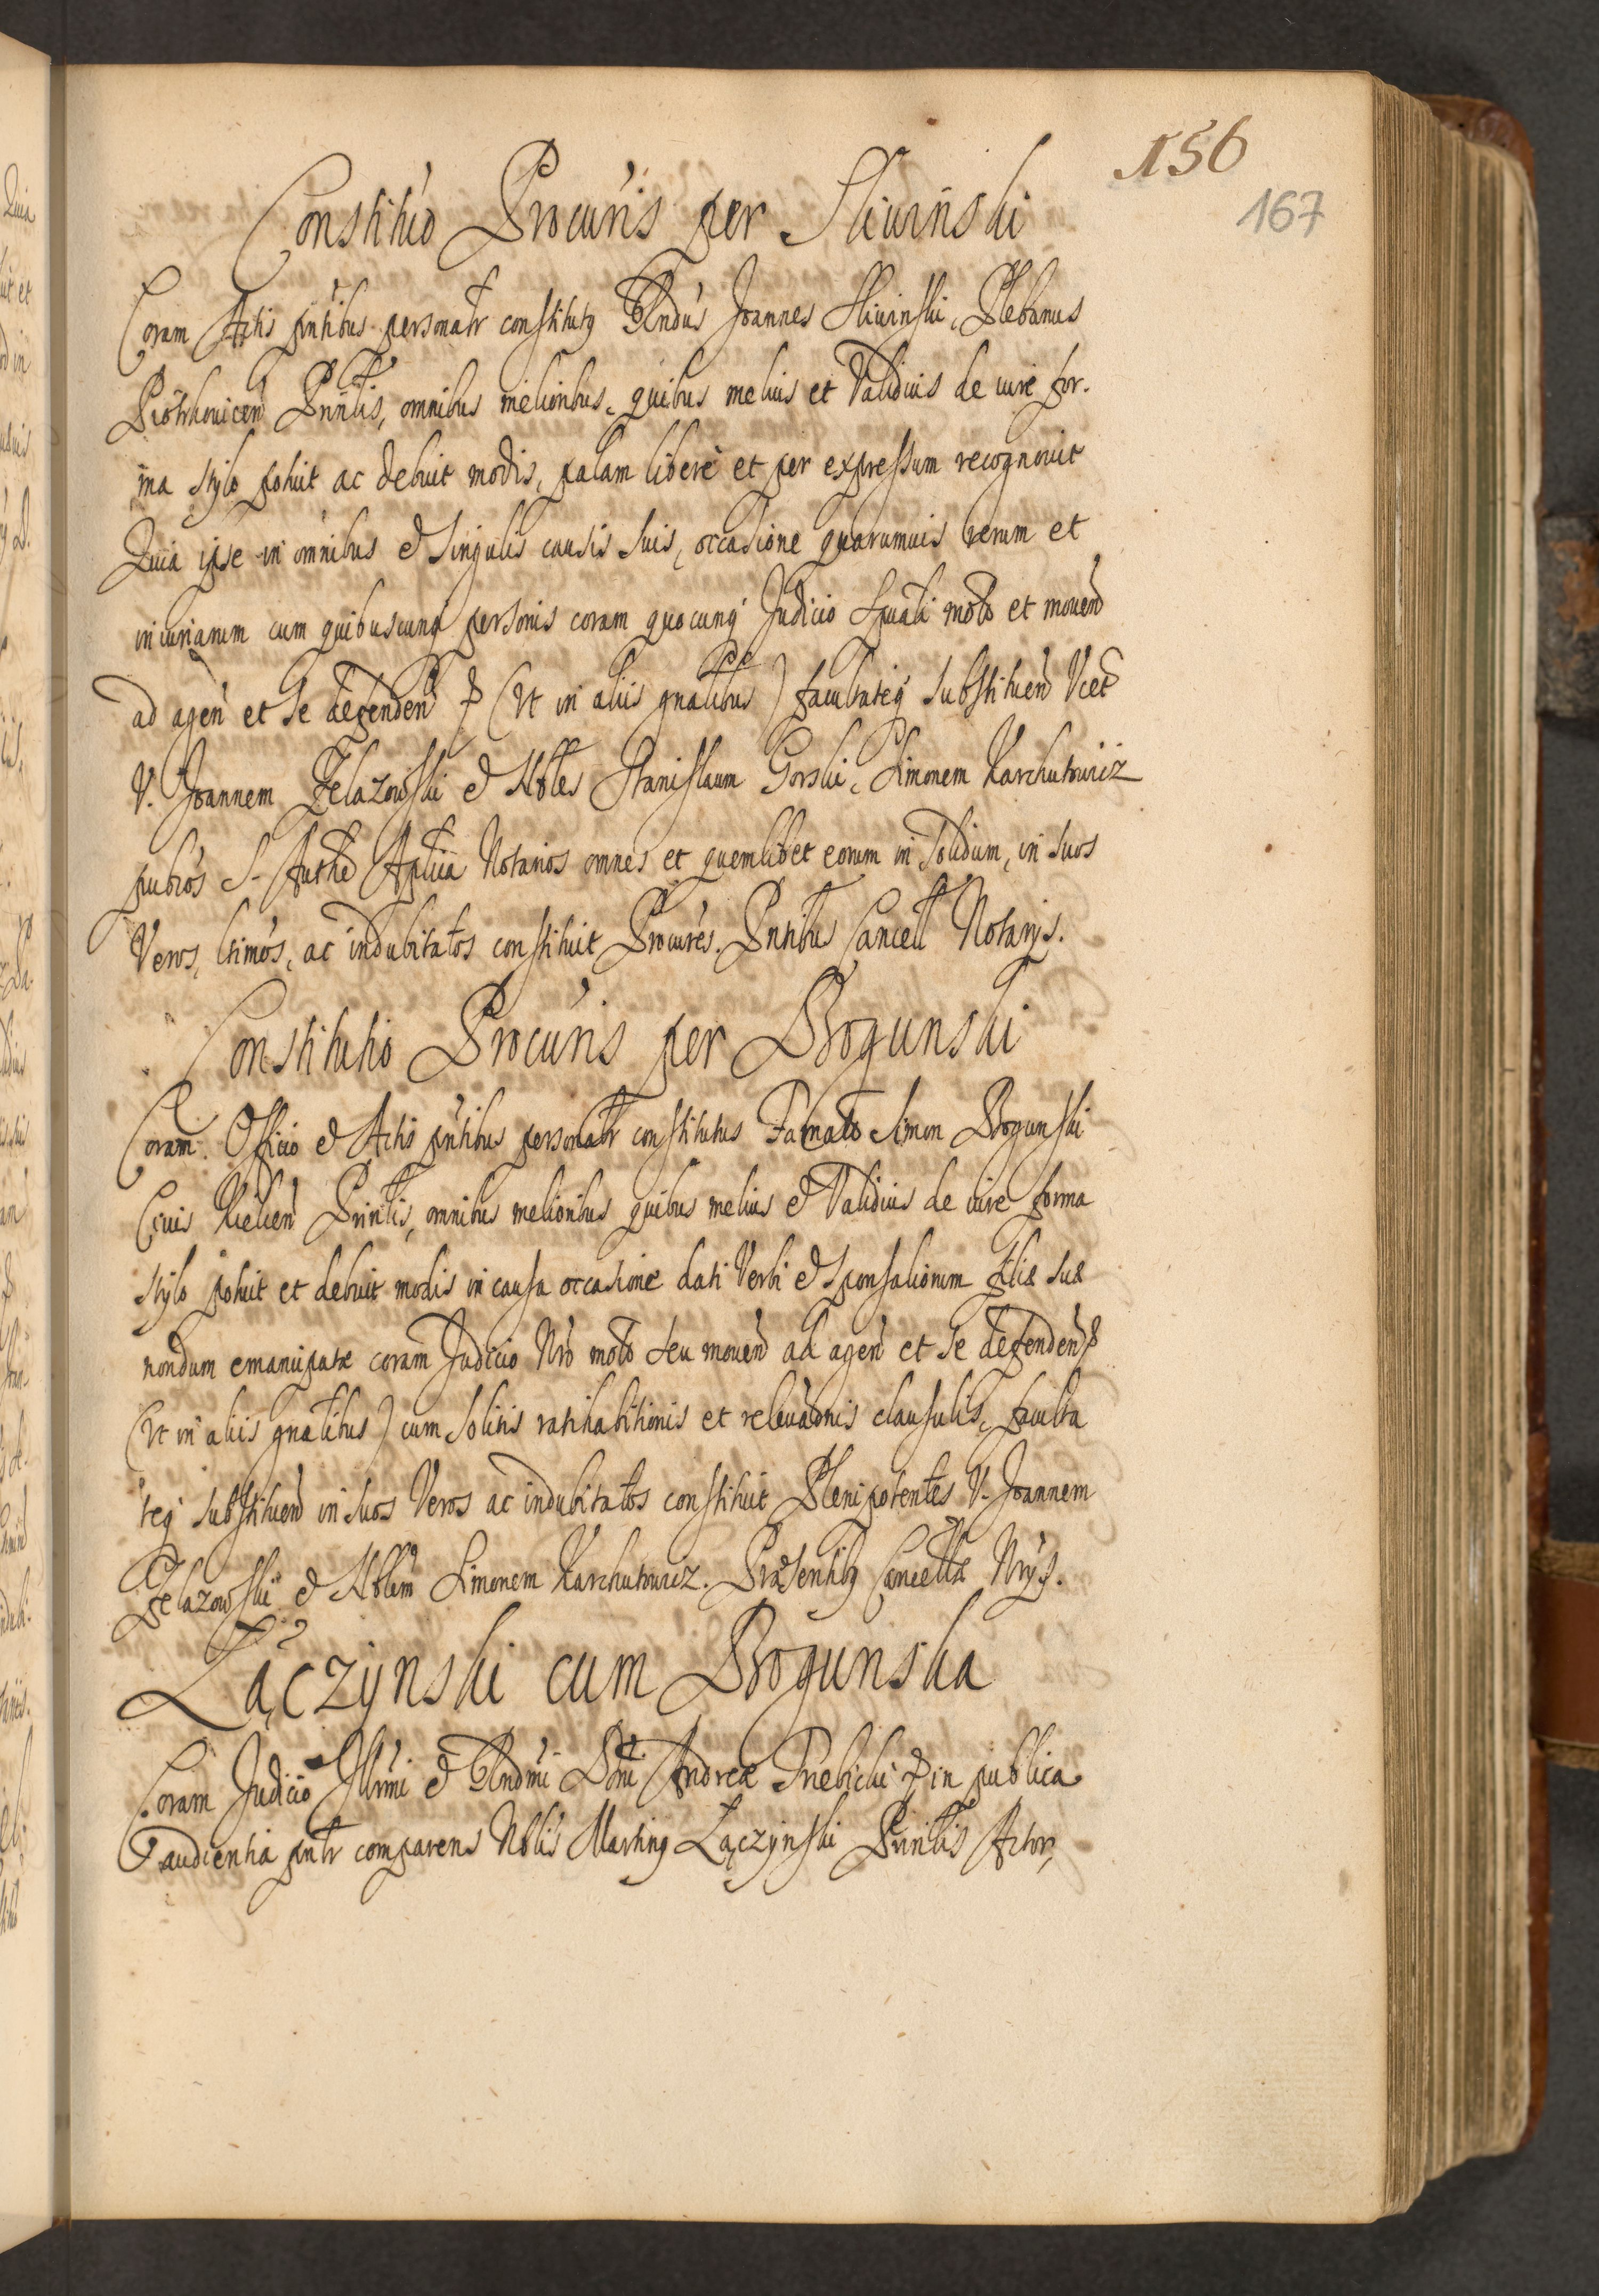 156
167
Constituo Procuris per Sliwinski
Coram Actis pntibus personalr constitutq Rndus Joannes Sliwinski, Plebanus
Piotrkouicen Prinlis, omnibus melioribus, quibus melius et Validius de iure for-
ma stylo potuit ac debuit modis, palam libere et per expressum recognouit
Quia ipse in omnibus et singulis causis suis, occasione quarumuis rerum et
iniuriarum cum quibuscunq personis coram quocunq Judicio Spuali moto et mouend
ad agen et se defenden p (Vt in aliis gnalibus) facultateq substituend Vcet
V. Joannem Zelazowski et Nbles Stanislaum Gorski, Simonem Karchutowicz
publos S. Authe Aplica Notarios omnes et quemlibet eorum in solidum, in suos
Veros, ltimos, ac indubitatos constituit Procures. Pntibus Cancell Notarijs.
Constitutio Procuris per Bogunski
Coram Officio et Actis pntibus personalr constitutus Famato Simon Bogunski
Ciuis Kielcen Prinlis, omnibus melioribus quibus melius et Validius de iure forma
stylo potuit et debuit modis in causa occasione dati Verbi et sponsaliorum filiæ suæ
nondum emancipatæ coram Judicio Nro moto seu mouend ad agen et se defenden p
(Vt in aliis gnalibus) cum solitis ratihabitionis et releuaonis clausulis, faculta
teq substituend in suos Veros ac indubitatos constituit Plenipotentes V. Joannem
Zelazowski et Nblem Simonem Karchutowicz. Præsentibq Cancellæ Nrijs.
Łączynski cum Bogunska
Coram Judicio Illrmi et Rndmi Dni Andreæ Trebicki p in publica
audientia pntr comparens Nblis Martinq Łączynski Prinlis Actor,